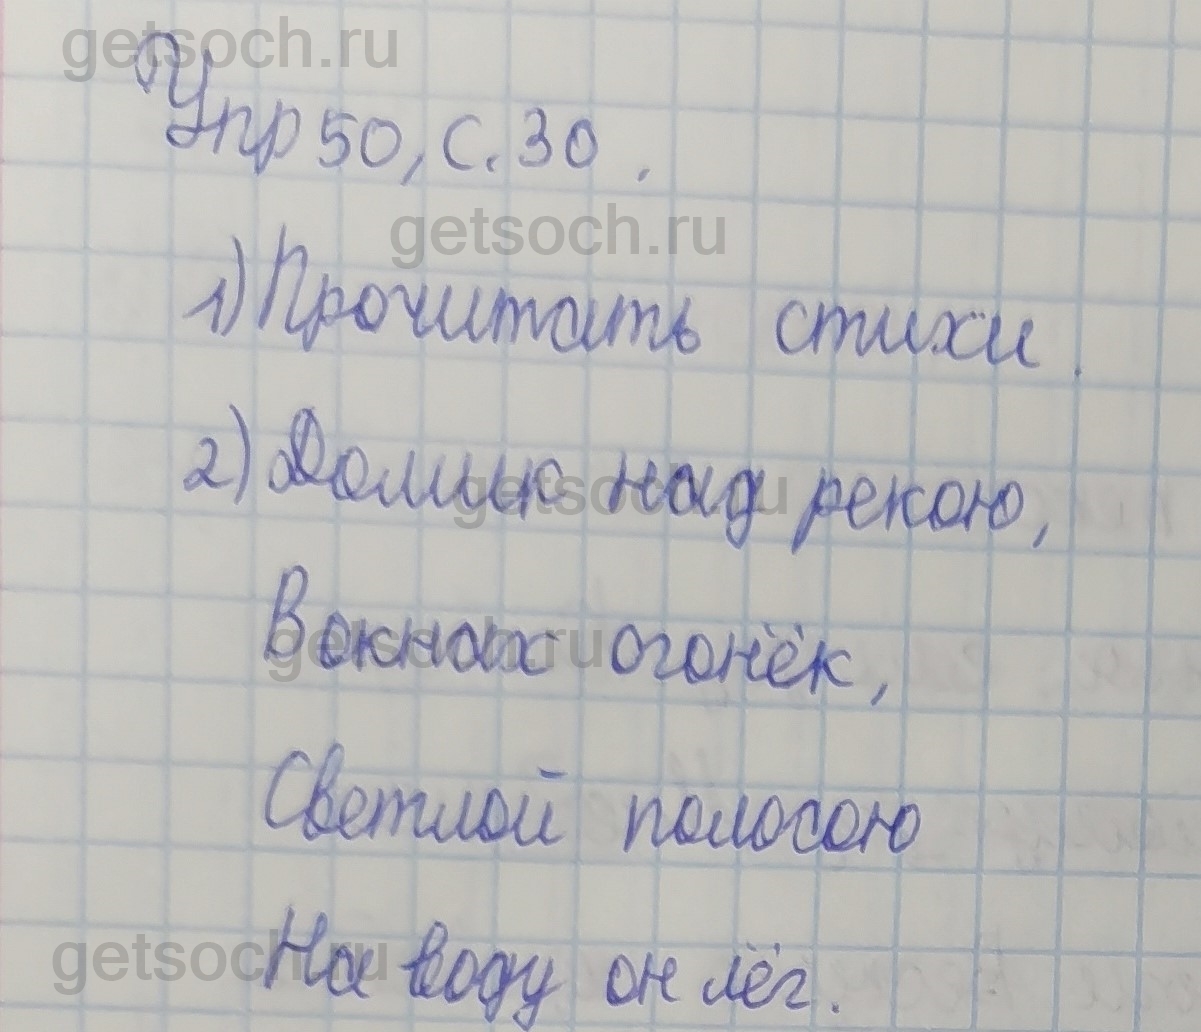 getsoch.ru
Упр 50, с. 30.
getsoch.ru
1) Прочитать стихи.
2) Домик над рекою,
getsoch.ru
В окнах огонёк,
getsoch.ru
Светлой полосою
На воду он лёг.
getsoch.ru